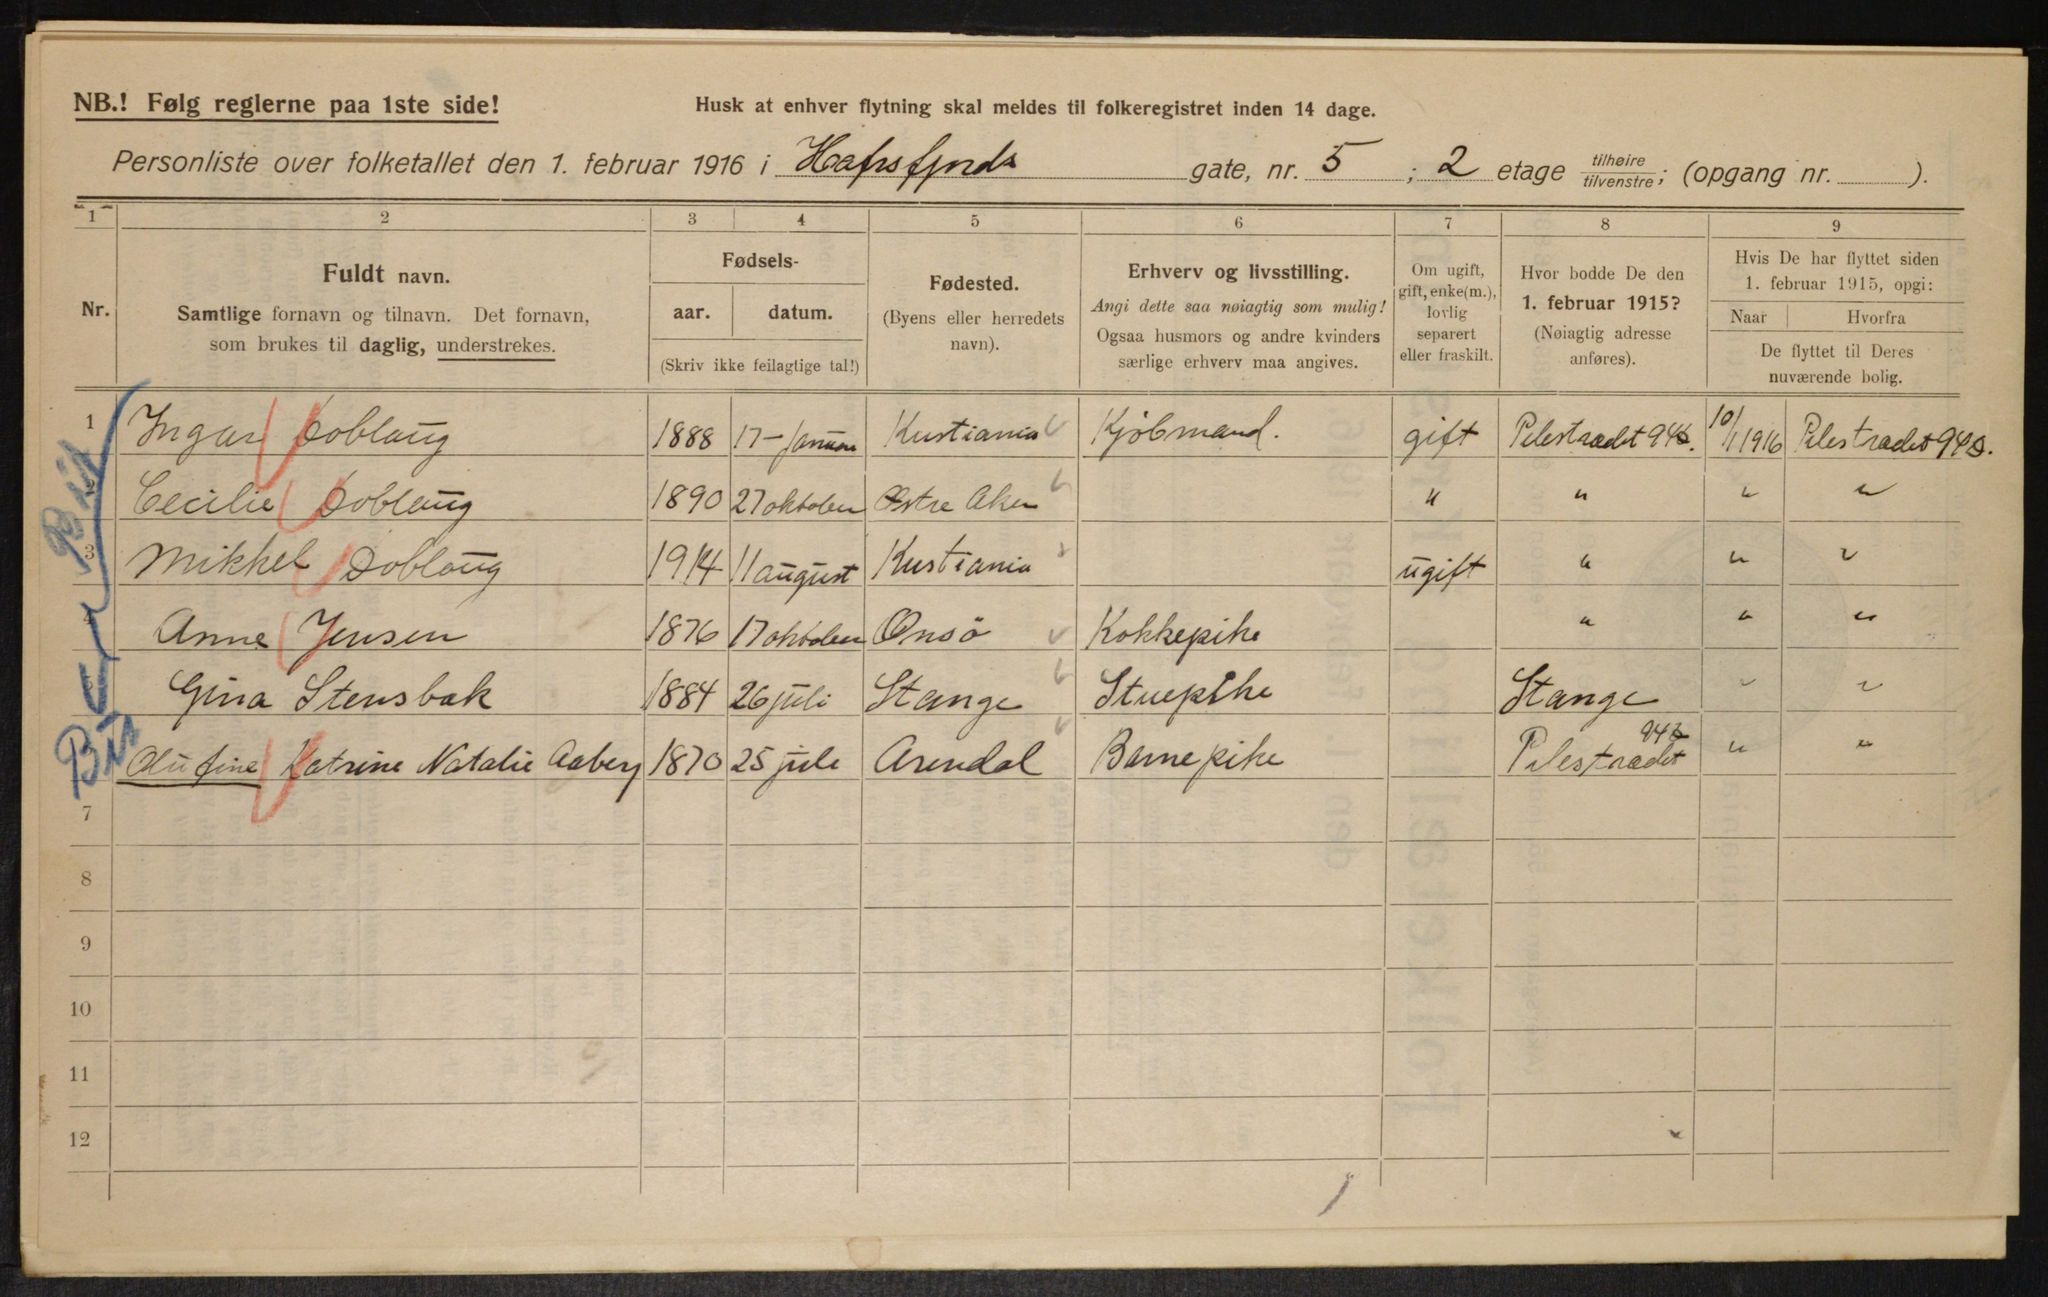 NB.! Følg reglerne paa 1ste side!
Husk at enhver flytning skal meldes til folkeregistret inden 14 dage.
Personliste over folketallet den 1. februar 1916 i Hafrsfjords gate, nr. 5 ; 2 etage tilhøire/tilvenstre; (opgang nr. ).
1 2 3 4 5 6 7 8 9
Nr.
Fuldt navn.
Samtlige fornavn og tilnavn. Det fornavn,
som brukes til daglig, understrekes.
Fødsels-
aar. datum.
(Skriv ikke feilagtige tal!)
Fødested.
(Byens eller herredets
navn).
Erhverv og livsstilling.
Angi dette saa nøiagtig som mulig!
Ogsaa husmors og andre kvinders
særlige erhverv maa angives.
Om ugift,
gift, enke(m.),
lovlig
separert
eller fraskilt.
Hvor bodde De den
1. februar 1915?
(Nøiagtig adresse
anføres).
Hvis De har flyttet siden
1. februar 1915, opgi:
Naar Hvorfra
De flyttet til Deres
nuværende bolig.
1 Ingar Doblaug 1888 17 Januar Kristiania Kjöbmand. gift Pilestraedet 94 10/1 1916 Pilestraedet 94
Cecilie Doblaug 1890 27 oktober Østre Aker " " " "
3 Mikkel Doblaug 1914 11 august Kristiania ugift " " "
4 Anne Jensen 1876 17 oktober Onsö Kokkepike " " "
Gina Stensbak 1884 26 juli Stange Stuepike Stange " "
Olufine Katrine Natalie Aaberg 1870 25 jule Arendal Barnepike Pilestraedet 94 " "
7
8
9
10
11
12